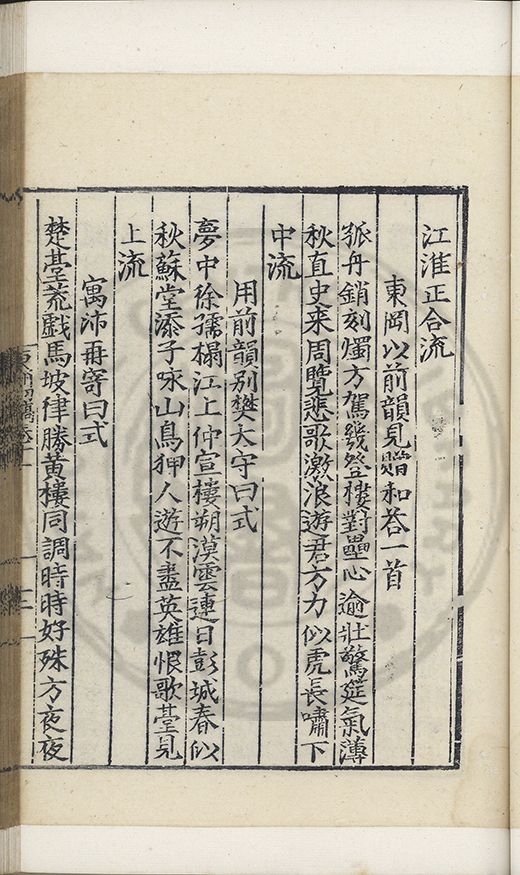 江淮正合流
東岡以前韻見贈和荅一首
孤舟銷刻燭方駕幾登樓對壘心逾壯驚筵氣薄
秋直史来周覽悲歌激浪遊君方力似虎長嘯下
中流
用前韻别樊大守曰式
夢中徐孺榻江上仲宣樓朔漠雲連日彭城春似
秋蘇堂添子咏山鳥狎人遊不盡英雄恨歌臺見
上流
寓沛再寄曰式
楚臺荒戲馬坡律勝黄樓同調時時好殊方夜夜